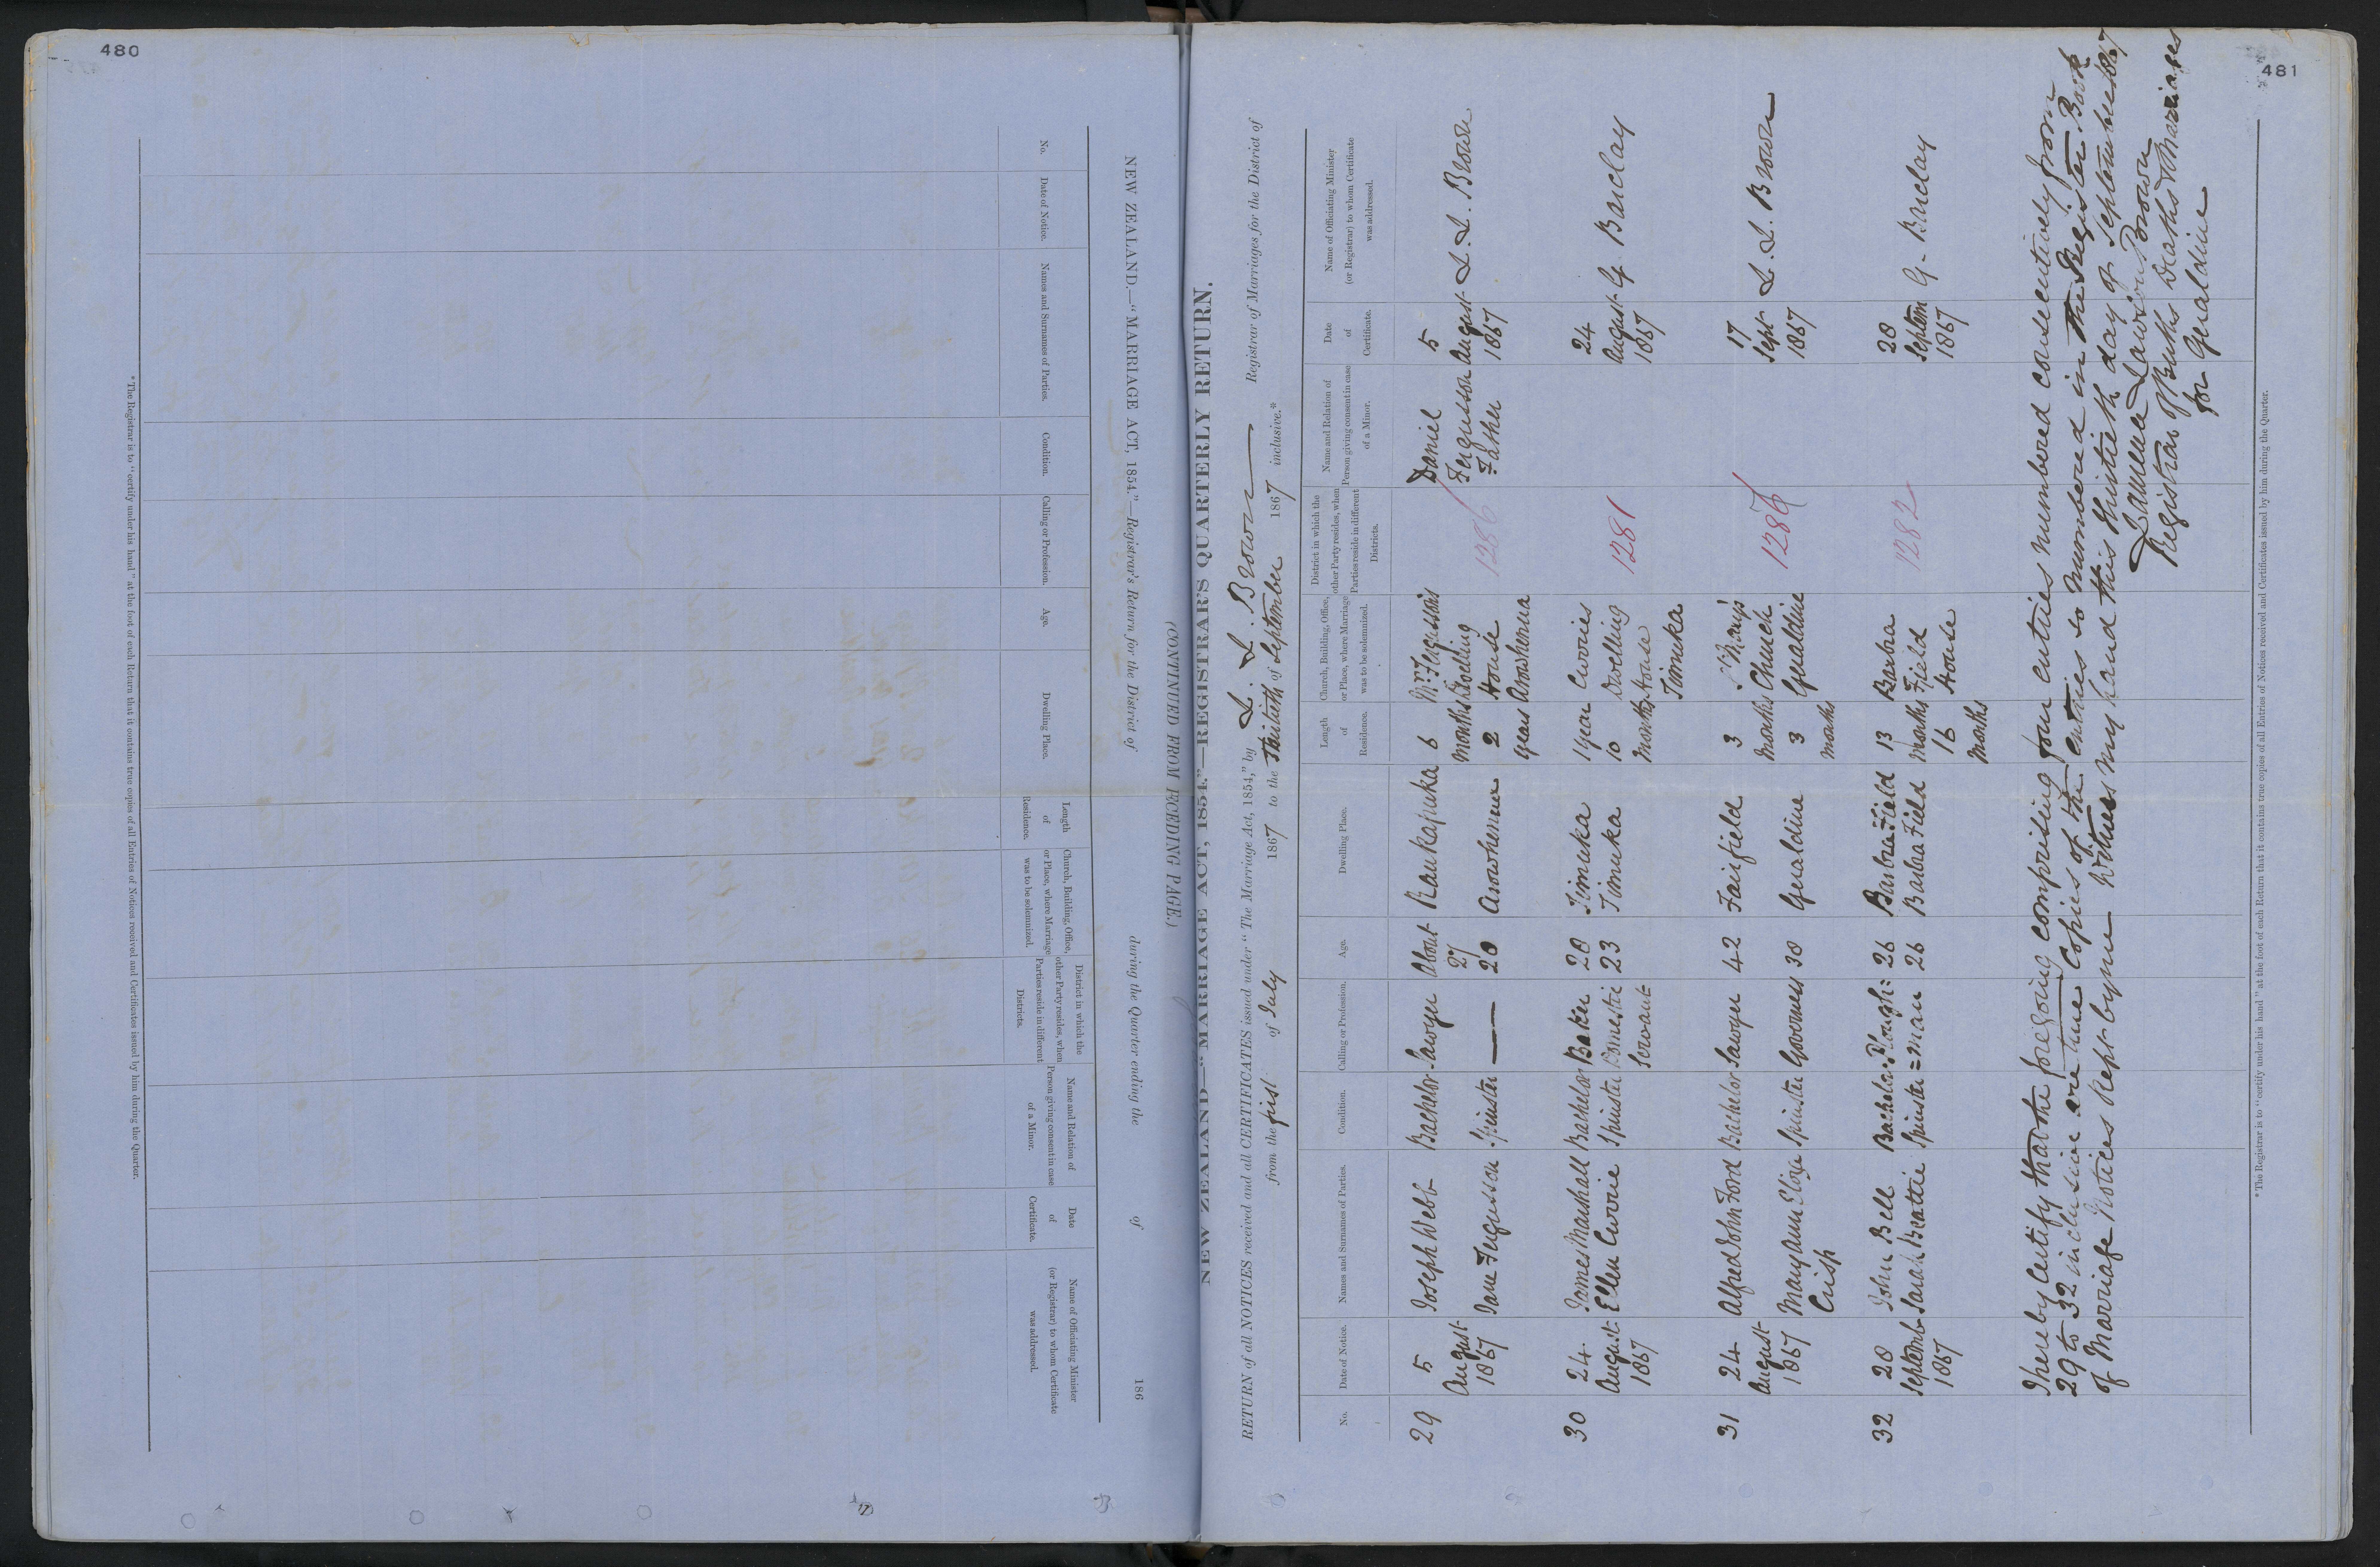 480
NEW ZEALAND.—"MARRIAGE ACT, 1854."—Registrar's Return for the District of
during the Quarter ending the
of
186
(CONTINUED FROM PRECEDING PAGE.)
No.
Date of Notice.
Names and Surnames of Parties.
Condition.
Calling or Profession.
Age.
Dwelling Place.
Length
of
Residence.
Church, Building, Office,
or Place, where Marriage
was to be solemnized.
District in which the
other Party resides, when
Parties reside in different
Districts.
Name and Relation of
Person giving consent in case
of a Minor.
Date
of
Certificate.
Name of Officiating Minister
(or Registrar) to whom Certificate
was addressed.
* The Registrar is to "certify under his hand" at the foot of each Return that it contains true copies of all Entries of Notices received and Certificates issued by him during the Quarter.
481
NEW ZEALAND—"MARRIAGE ACT, 1854."—REGISTRAR'S QUARTERLY RETURN.
RETURN of all NOTICES received and all CERTIFICATES issued under "The Marriage Act, 1854," by L. L. Brown Registrar of Marriages for the District of
from the first of July 1867 to the Thirtieth of September 1867 inclusive.*
No.
Date of Notice.
Names and Surnames of Parties.
Condition.
Calling or Profession.
Age.
Dwelling Place.
Length
of
Residence.
Church, Building, Office,
or Place, where Marriage
was to be solemnized.
District in which the
other Party resides, when
Parties reside in different
Districts.
Name and Relation of
Person giving consent in case
of a Minor.
Date
of
Certificate.
Name of Officiating Minister
(or Registrar) to whom Certificate
was addressed.
29
5
August
1867
Joseph Webb
Jane Fergusson
Bachelor
Spinster
Sawyer
—
About
27
20
Raukapuka
Arowhenua
6
months
2
years
Mr. Fergusson's
Dwelling
House
Arowhenua
1286
Daniel
Fergusson
Father
5
August
1867
L. L. Brown
30
24
August
1867
James Marshall
Ellen Currie
Bachelor
Spinster
Baker
Domestic
Servant
28
23
Timuka
Timuka
1 year
10
months
Curries
Dwelling
House
Timuka
1281
24
August
1867
G. Barclay
31
24
August
1867
Alfred John Ford
Mary Ann Eliza
Crisp
Bachelor
Spinster
Sawyer
Governess
42
30
Fairfield
Geraldine
3
months
3
months
St Mary's
Church
Geraldine
1287
17
Sept
1867
L. L. Brown
32
28
Septemb
1867
John Bell
Sarah Beattie
Bachelor
Spinster
Plough=
=man
26
26
Barbra Field
Barbra Field
13
months
16
months
Barbra
Field
House
1282
28
Septem
1867
G. Barclay
I hereby Certify that the foregoing comprising four entries numbered consecutively from
29 to 32 inclusive are true Copies of the entries so numbered in the Register Book
of Marriage Notices Kept by me Witness my hand this thirtieth day of September 1867
Laurence Lawson Brown
Registrar of Births Deaths & Marriages
for Geraldine
* The Registrar is to "certify under his hand" at the foot of each Return that it contains true copies of all Entries of Notices received and Certificates issued by him during the Quarter.